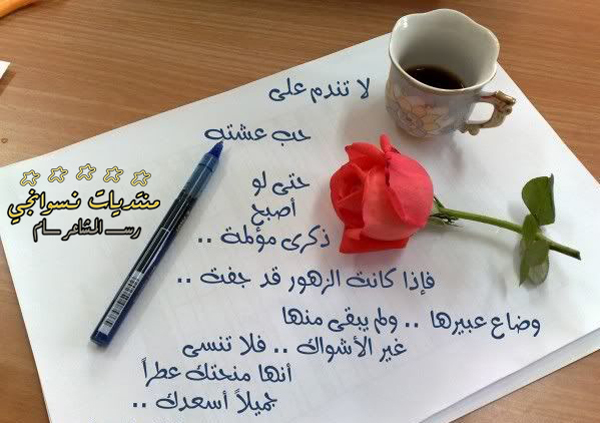 لا تندم على
حب عشته
حتى لو
أصبح
ذكرى مؤلمة ..
فإذا كانت الزهور قد جفت ..
وضاع عبيرها .. ولم يبقى منها
غير الأشواك .. فلا تنسى
أنها منحتك عطراً
جميلاً أسعدك ..
منتديات نسوانجي
رســـ الشاعر ـــام